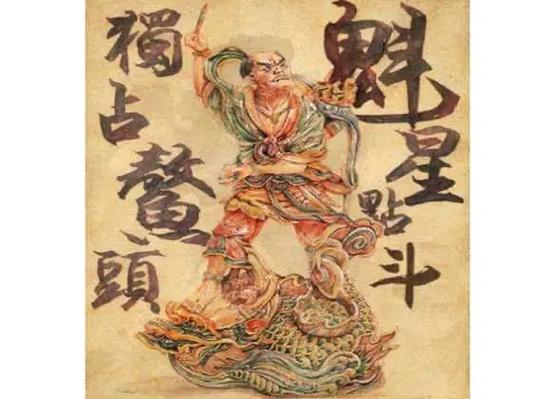 魁星點斗
獨占鰲頭